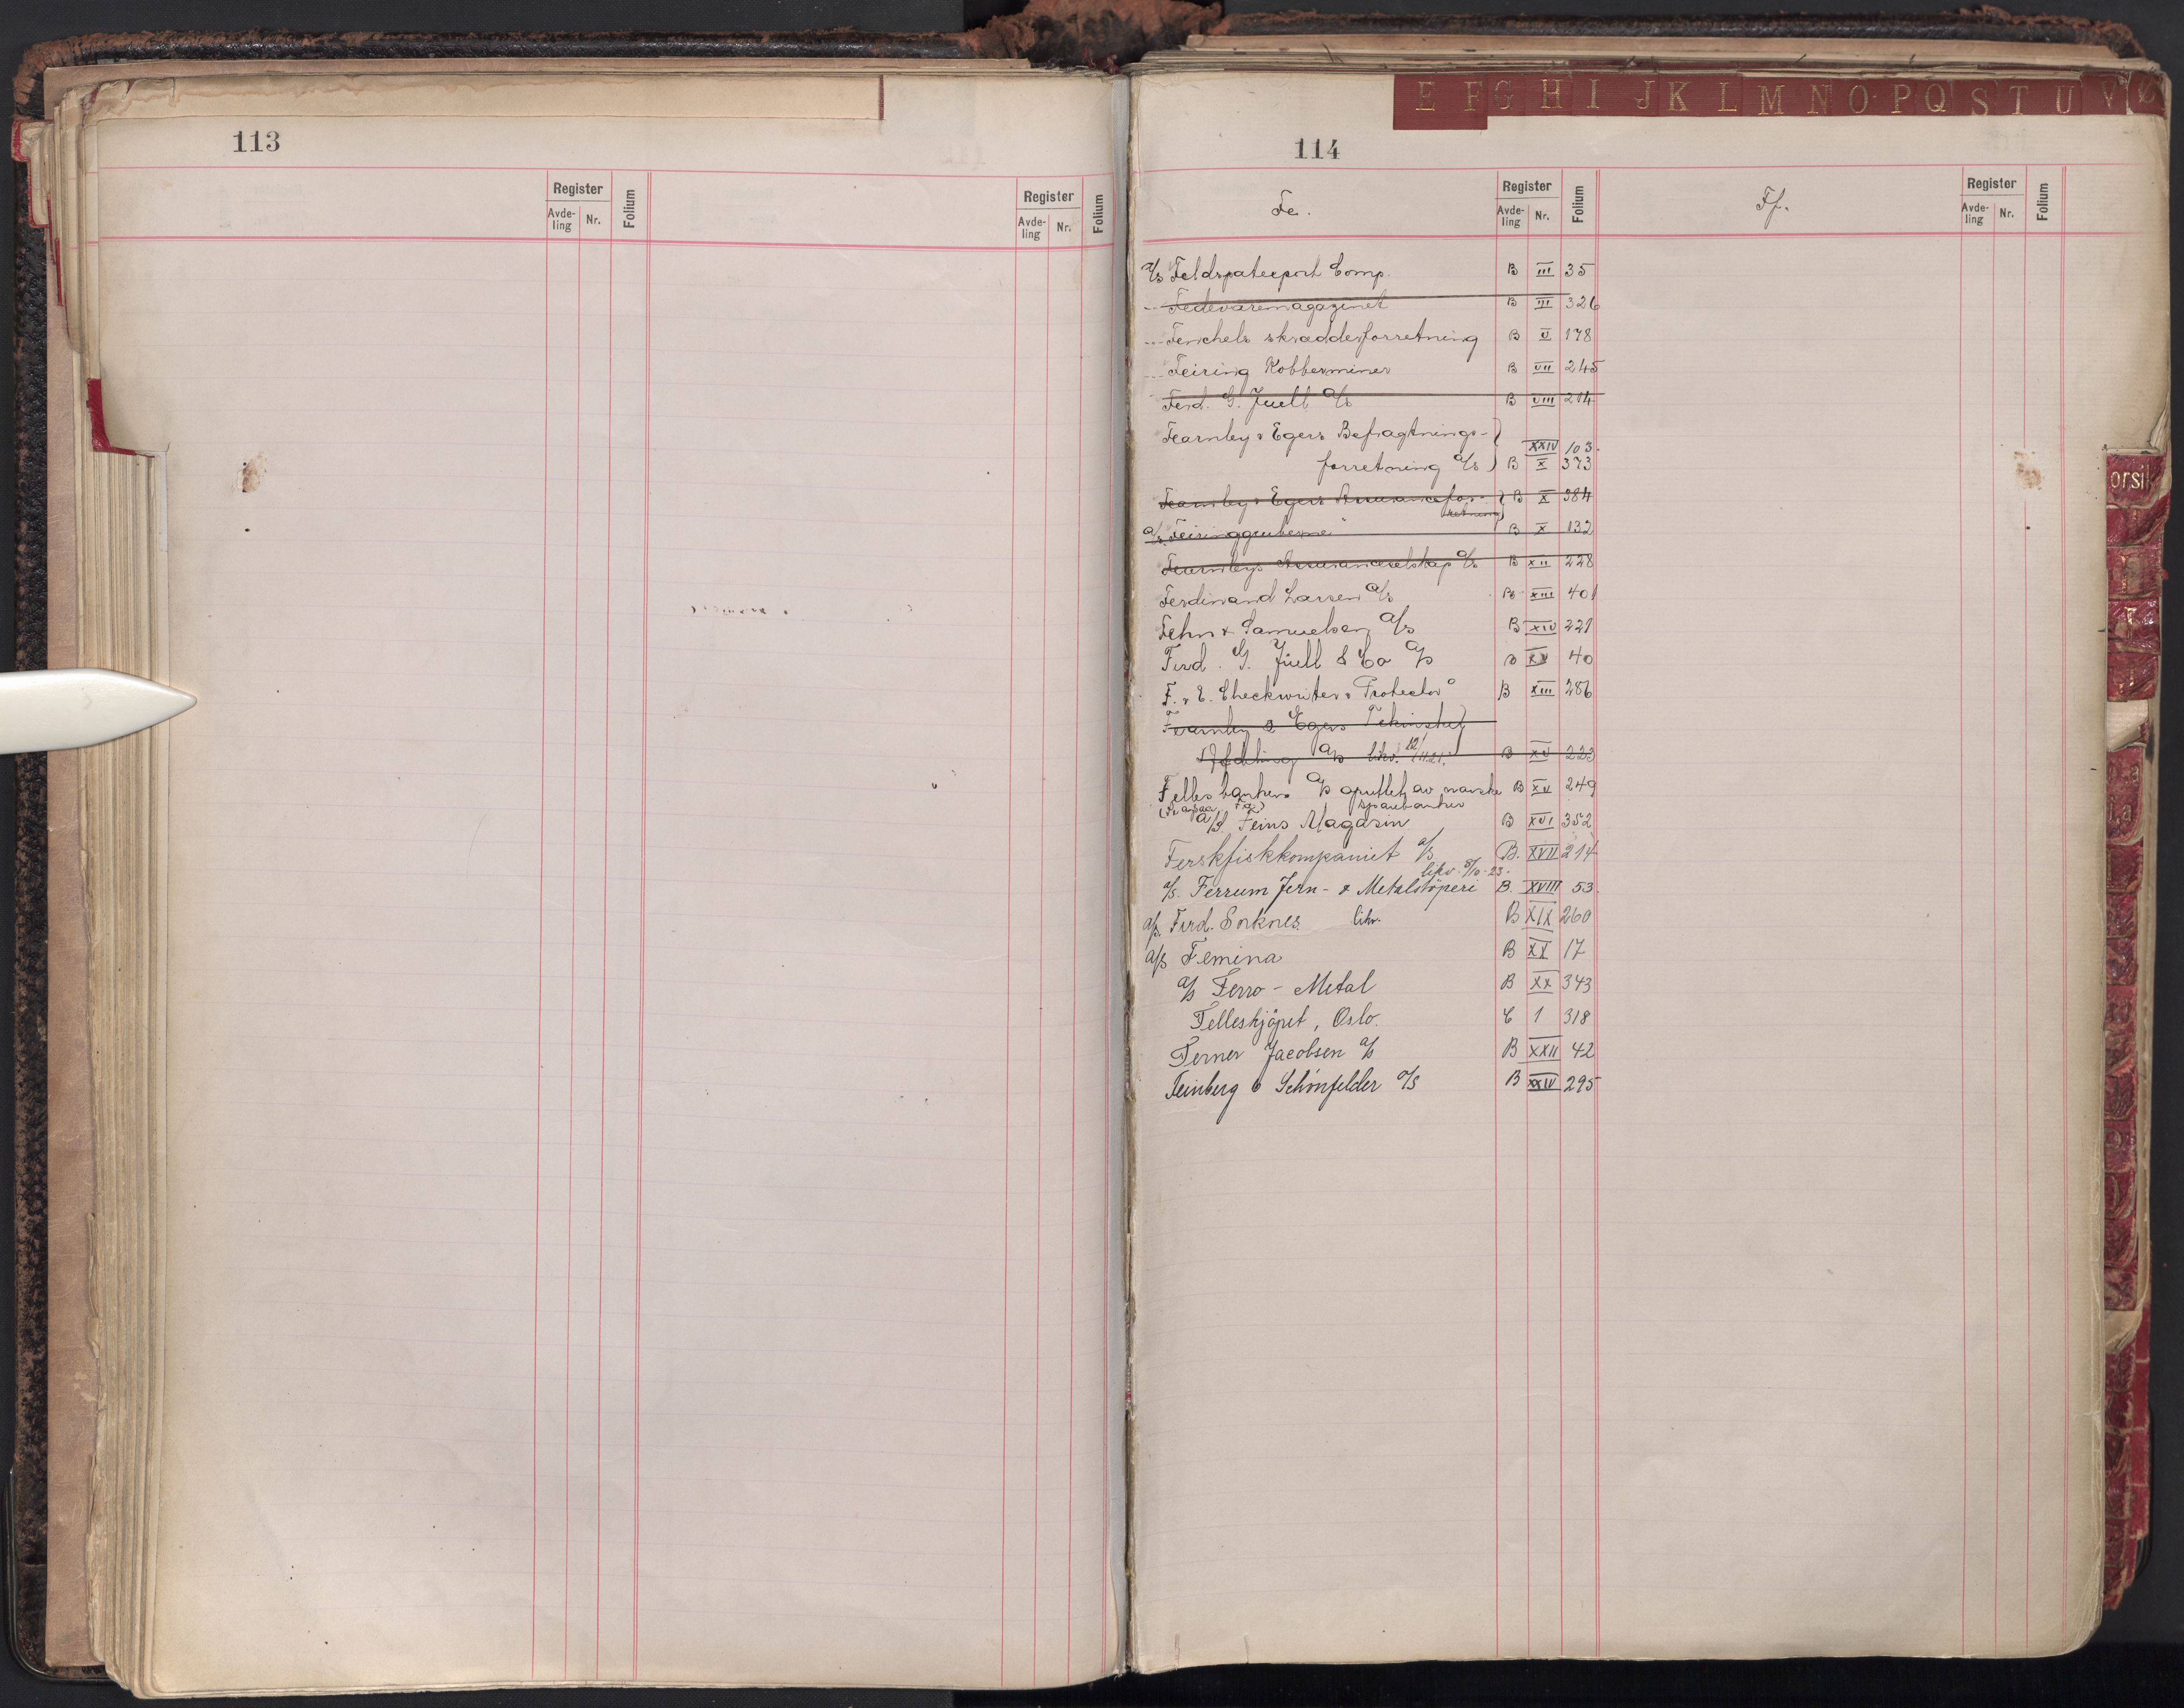 113
Register Folium Register Folium
Avde-ling Nr. Avde-ling Nr.
E F G H I J K L M N O P Q S T U V
114
Fe. Register Folium Ff. Register Folium
Avde-ling Nr. Avde-ling Nr.
a/s Feldspatexport Comp. B III 35
" Fedevaremagazinet B III 326
" Fenchels skrædderforretning B V 178
" Feiring Kobberminer B VII 245
Ferd. G. Juell a/s B VIII 214
Fearnley & Egers Befragtnings- XXIV 103.
forretning a/s B X 373
Fearnley & Egers Assurancefor- B X 384
retning
a/s "Feiringgruberne" B X 132
Fearnleys Assuranceselskap a/s B XII 228
Ferdinand Larsen a/s B XIII 401
Fehn & Samuelsen a/s B XIV 221
Ferd. G. Juell & Co a/s B XV 40
F. & E. Checkwriter & Protector B XIII 286
Fearnley & Egers Tekniske
Afdeling a/s likv. 12/11 21. B XV 223
Fellesbanken a/s oprettet av norske B XV 249
sparebanker
a/s Feins Magasin B XVI 352
Ferskfiskkompaniet a/s B. XVII 214
likv. 8/10-23.
a/s. Ferrum Jern- & Metalstöperi B. XVIII 53.
a/s. Ferd. Sorknes. likv. B XIX 260
a/s Femina B XX 17
a/s Ferro - Metal B XX 343
Felleskjøpet, Oslo. C 1 318
Ferner Jacobsen a/s B XXII 42
Feinberg & Schönfelder a/s B XXIV 295
orsik